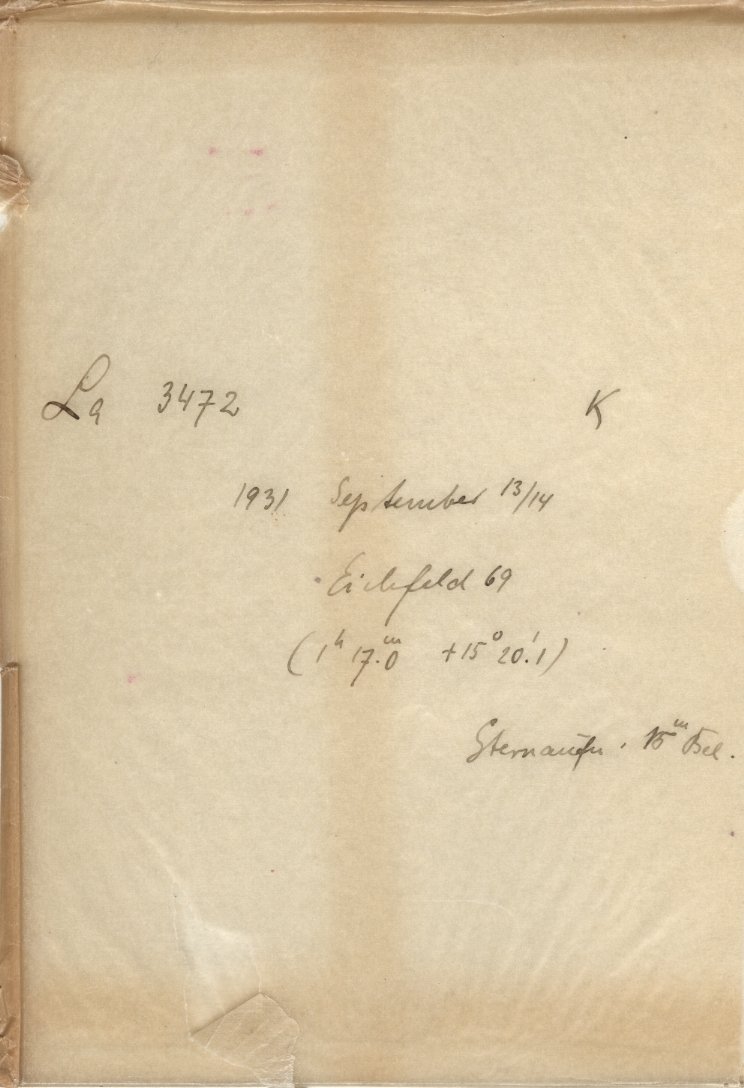 La 3472 K
1931 September 13/14
Eichfeld 69
(1ʰ 17.ᵐ0 +15° 20.'1)
Sternaufn. 15ᵐ Bel.